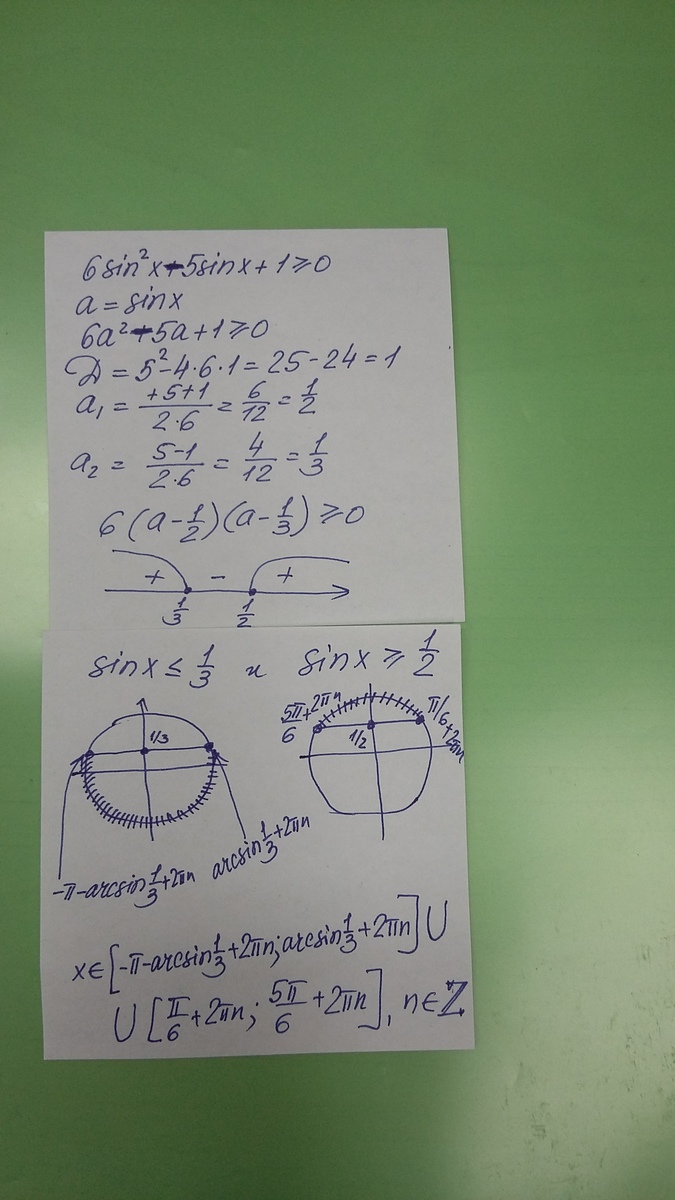 6sin²x-5sinx+1≥0
a=sinx
6a²-5a+1≥0
D=5²-4·6·1=25-24=1
a₁=(+5+1)/(2·6)=6/12=1/2
a₂=(5-1)/(2·6)=4/12=1/3
6(a-1/2)(a-1/3)≥0
+ - +
1/3 1/2
sinx≤1/3 и sinx≥1/2
5π/6+2πn π/6+2πn
1/3 1/2
-π-arcsin1/3+2πn arcsin1/3+2πn
x∈[-π-arcsin1/3+2πn;arcsin1/3+2πn]∪
∪[π/6+2πn;5π/6+2πn], n∈Z